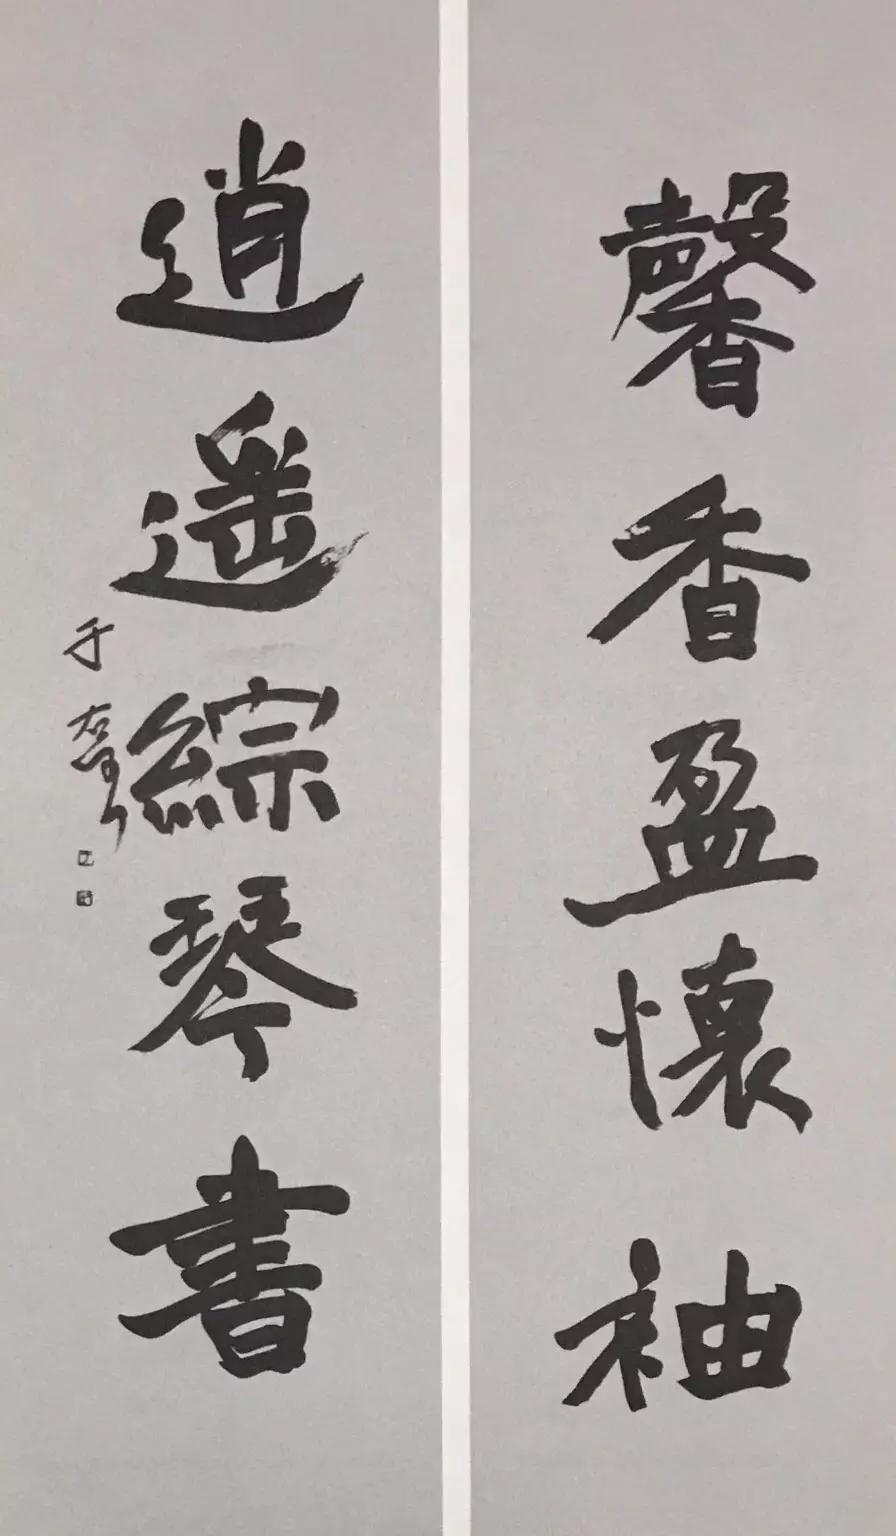 馨香盈懷袖
逍遥綜琴書
于右任